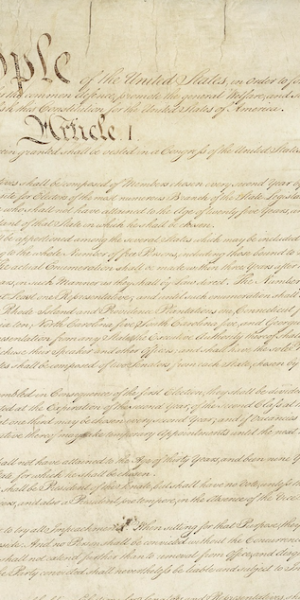 ople of the United States, in Order to fo
the common defence, promote the general Welfare, and se
ish this Constitution for the United States of America.
Article. I.
rein granted shall be vested in a Congress of the United States
tives shall be composed of Members chosen every second Year by
site for Electors of the most numerous Branch of the State Legislat
who shall not have attained to the Age of twenty five Years, an
itant of that State in which he shall be chosen.
be apportioned among the several States which may be included
g to the whole Number of free Persons, including those bound to
he actual Enumeration shall be made within three Years after
ears, in such Manner as they shall by Law direct. The Number
t Least one Representative; and until such enumeration shall
Rhode Island and Providence Plantations one, Connecticut f
ten, North Carolina five, South Carolina five, and Georg
resentation from any State, the Executive Authority thereof shall
chuse their Speaker and other Officers; and shall have the sole P
es shall be composed of two Senators from each State, chosen by
embled in Consequence of the first Election, they shall be divide
ated at the Expiration of the second Year, of the second Class at
at one third may be chosen every second Year; and if Vacancies
utive thereof may make temporary Appointments until the next
hall not have attained to the Age of thirty Years, and been nine
ate for which he shall be chosen.
s shall be President of the Senate, but shall have no Vote, unless th
ers, and also a President pro tempore, in the Absence of the Vice
r to try all Impeachments. When sitting for that Purpose, they
side: And no Person shall be convicted without the Concurrence
hall not extend further than to removal from Office, and disqu
the Party convicted shall nevertheless be liable and subject to In
for Senators and Representatives